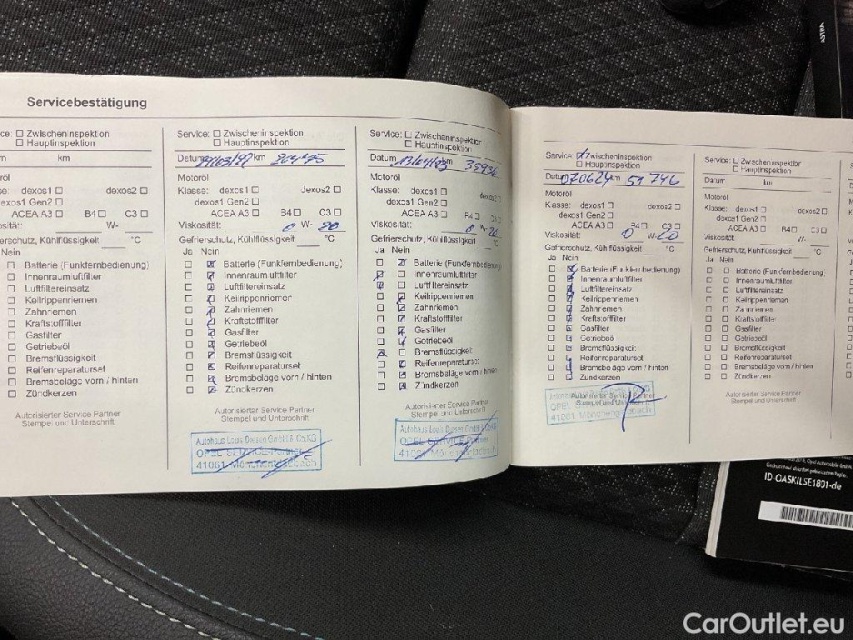 Servicebestätigung
Zwischeninspektion
Hauptinspektion
km
dexos1
dexos2
dexos1 Gen2
ACEA A3 B4 C3
W-
Kühlflüssigkeit °C
Nein
Batterie (Funkfernbedienung)
Innenraumluftfilter
Luftfiltereinsatz
Keilrippenriemen
Zahnriemen
Kraftstofffilter
Gasfilter
Getriebeöl
Bremsflüssigkeit
Reifenreparaturset
Bremsbeläge vorn / hinten
Zündkerzen
Autorisierter Service Partner
Stempel und Unterschrift
Service: Zwischeninspektion
Hauptinspektion
Datum km
Motoröl
Klasse: dexos1 dexos2
dexos1 Gen2
ACEA A3 B4 C3
Viskosität: 0 W-
Gefrierschutz, Kühlflüssigkeit °C
Ja Nein
Batterie (Funkfernbedienung)
Innenraumluftfilter
Luftfiltereinsatz
Keilrippenriemen
Zahnriemen
Kraftstofffilter
Gasfilter
Getriebeöl
Bremsflüssigkeit
Reifenreparaturset
Bremsbeläge vorn / hinten
Zündkerzen
Autorisierter Service Partner
Stempel und Unterschrift
Autohaus Louis GmbH & Co KG
OPEL
41061 Mönchengladbach
Service: Zwischeninspektion
Hauptinspektion
Datum km
Motoröl
Klasse: dexos1
dexos1 Gen2
ACEA A3 B4 C3
Viskosität: 0 W-
Gefrierschutz, Kühlflüssigkeit °C
Ja Nein
Batterie (Funkfernbedienung)
Innenraumluftfilter
Luftfiltereinsatz
Keilrippenriemen
Zahnriemen
Kraftstofffilter
Gasfilter
Getriebeöl
Bremsflüssigkeit
Reifenreparaturset
Bremsbeläge vorn / hinten
Zündkerzen
Autorisierter Service Partner
Stempel und Unterschrift
Autohaus Louis GmbH & Co KG
OPEL
Service: Zwischeninspektion
Hauptinspektion
070624 km 51746
Motoröl
Klasse: dexos1 dexos2
dexos1 Gen2
ACEA A3 B4 C3
Viskosität: 0 W-20
Gefrierschutz, Kühlflüssigkeit °C
Ja Nein
Batterie (Funkfernbedienung)
Innenraumluftfilter
Luftfiltereinsatz
Keilrippenriemen
Zahnriemen
Kraftstofffilter
Gasfilter
Getriebeöl
Bremsflüssigkeit
Reifenreparaturset
Bremsbeläge vorn / hinten
Zündkerzen
Autorisierter Service
Stempel und
OPEL
41061 Mönchengladbach
Service: Zwischeninspektion
Hauptinspektion
Datum km
Motoröl
Klasse: dexos1 dexos2
dexos1 Gen2
ACEA A3 B4 C3
Viskosität: W-
Gefrierschutz, Kühlflüssigkeit °C
Ja Nein
Batterie (Funkfernbedienung)
Innenraumluftfilter
Luftfiltereinsatz
Keilrippenriemen
Zahnriemen
Kraftstofffilter
Gasfilter
Getriebeöl
Bremsflüssigkeit
Reifenreparaturset
Bremsbeläge vorn / hinten
Zündkerzen
Autorisierter Service Partner
Stempel und Unterschrift
ASTRA
ID-OASKILSE1801-de
CarOutlet.eu